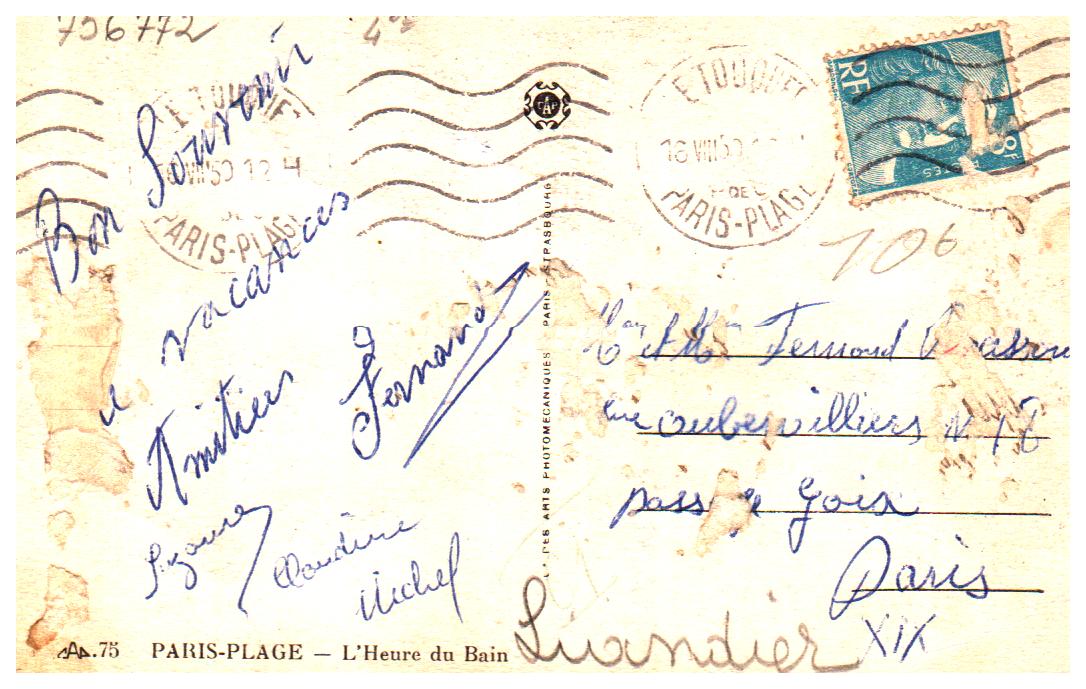 756772
LE TOUQUET
18 VIII 50 12 H
PARIS-PLAGE
Bon Souvenir
de vacances
Amitiés
Fernand
Suzanne
Claudine
Michel
CAP.75 PARIS-PLAGE — L'Heure du Bain
PES ARTS PHOTOMECANIQUES · PARIS · STRASBOURG
LE TOUQUET
18 VIII 50
DE
PARIS-PLAGE
RF
8F
106
et Fernand
Rue aubervilliers N 18
passage Goix
Paris
XIX